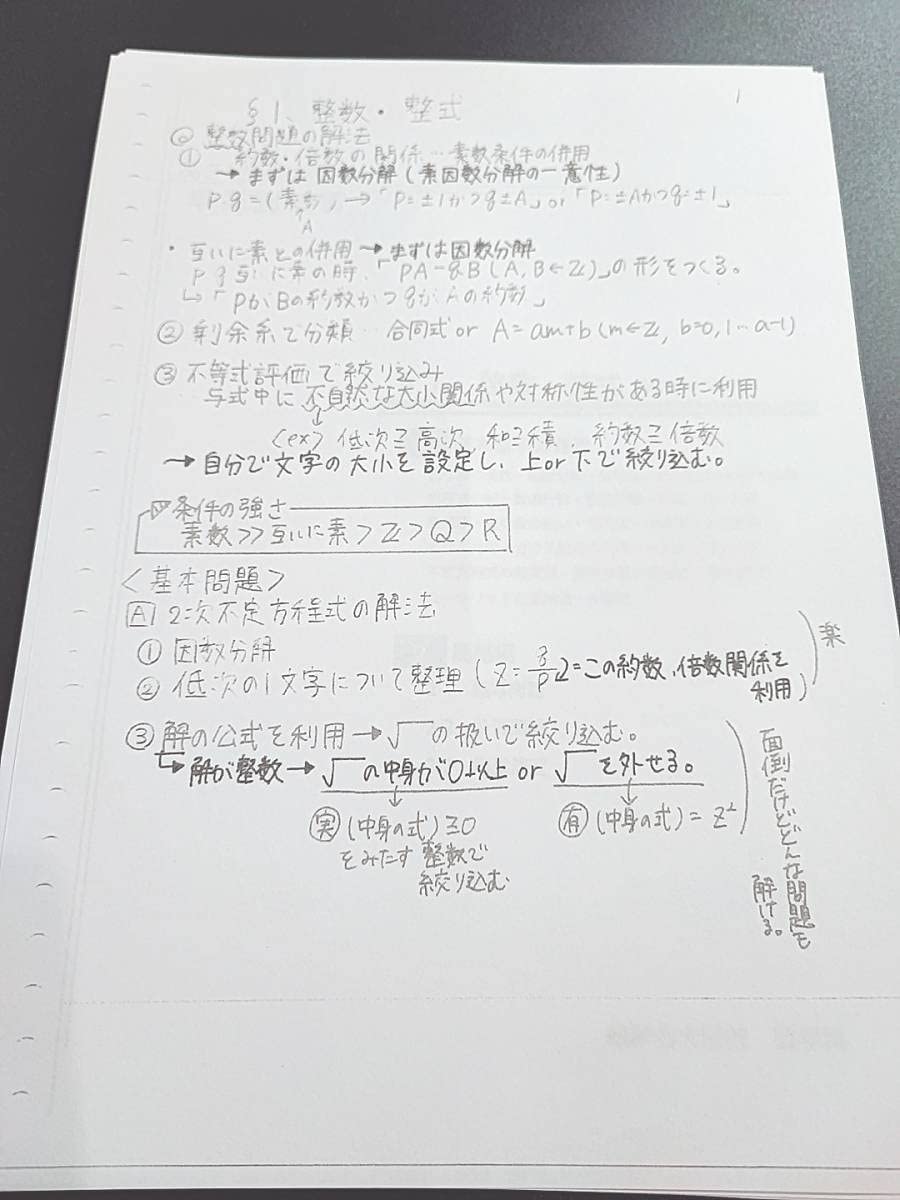 1
§1、整数・整式
◎ 整数問題の解法
① 約数・倍数の関係…素数条件の併用
→ まずは因数分解(素因数分解の一意性)
p・q=(素数) →「P=±1かつq=±A」or「P=±Aかつq=±1」
A
・互いに素との併用 → まずは因数分解
p q 互いに素の時、「PA=qB(A, B∈Z)」の形をつくる。
↳「PがBの約数かつqがAの約数」
② 剰余系で分類… 合同式 or A=am+b(m∈Z, b=0,1…a-1)
③ 不等式評価で絞り込み
与式中に不自然な大小関係や対称性がある時に利用
<ex> 低次≧高次、和≧積、約数≧倍数
→ 自分で文字の大小を設定し、上or下で絞り込む。
条件の強さ
素数≫互いに素>Z>Q>R
<基本問題>
A 2次不定方程式の解法
① 因数分解
② 低次の1文字について整理(Z= この約数、倍数関係を
利用)
楽
③ 解の公式を利用→√ の扱いで絞り込む。
↳ 解が整数→ √ の中身が0以上 or √ を外せる。
実 (中身の式)≧0
をみたす整数で
絞り込む
有 (中身の式)=Z²
面倒だけどどんな問題も
解ける。